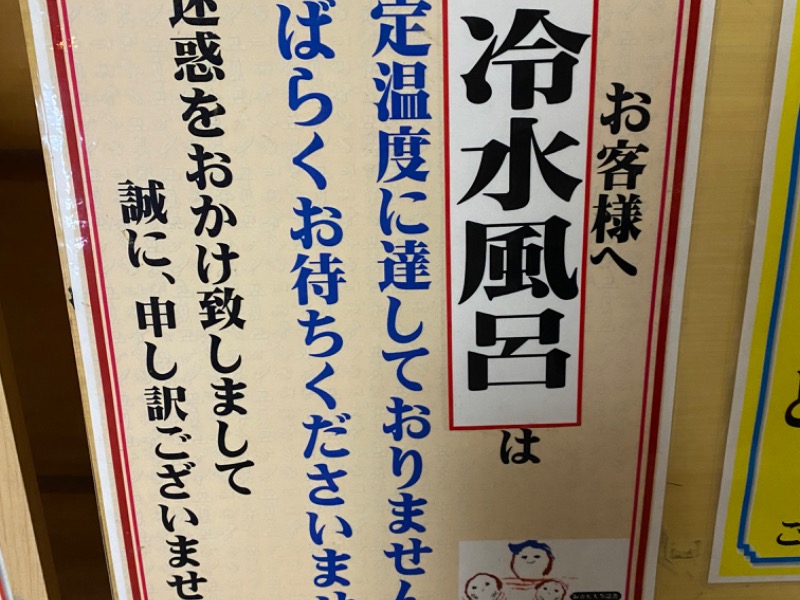 お客様へ
冷水風呂は
定温度に達しておりません
ばらくお待ちくださいませ
迷惑をおかけ致しまして
誠に、申し訳ございませ